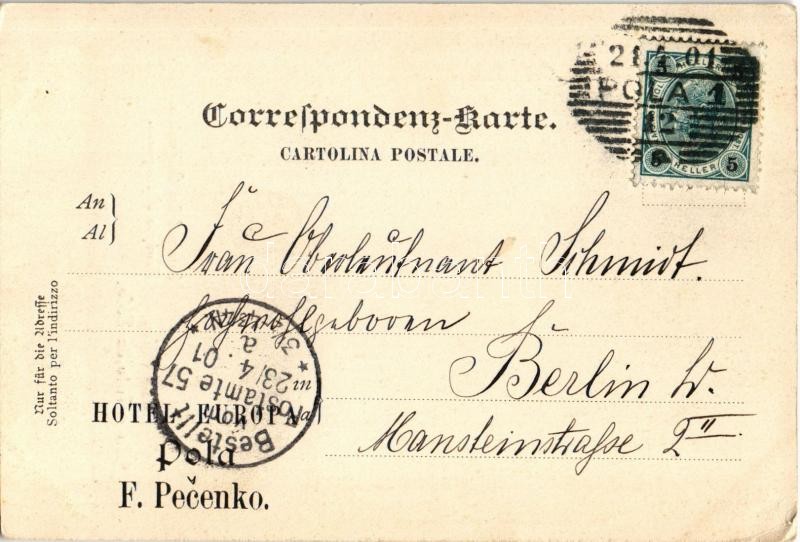 21.4.01
POLA 1
12
HELLER
5 5
Correſpondenz-Karte.
CARTOLINA POSTALE.
An
Al
Frau Oberleutnant Schmidt.
Hochwohlgeboren
in
Berlin W.
Mansteinstraße 2 II
Nur für die Adreſſe
Soltanto per l'indirizzo
Bestellt
vom
Postamte 57
23/4.01
HOTEL EUROPA
Pola
F. Pečenko.